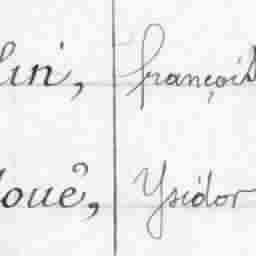 lin, françois
loué, Ysidor